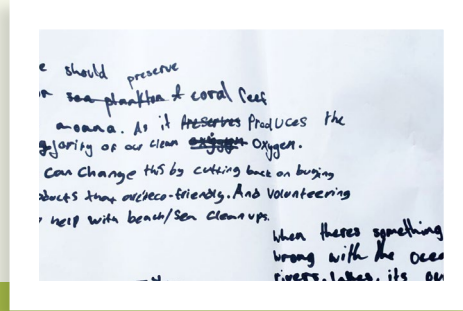 e should preserve
r sea plankton & coral reef
moana. As it Preserves Produces the
gjority of our clean oxygen Oxygen.
can change this by cutting back on buying
oducts that are eco-friendly. And volunteering
help with beach/sea clean ups.
when theres something
wrong with the ocea
rivers, lakes, its ou